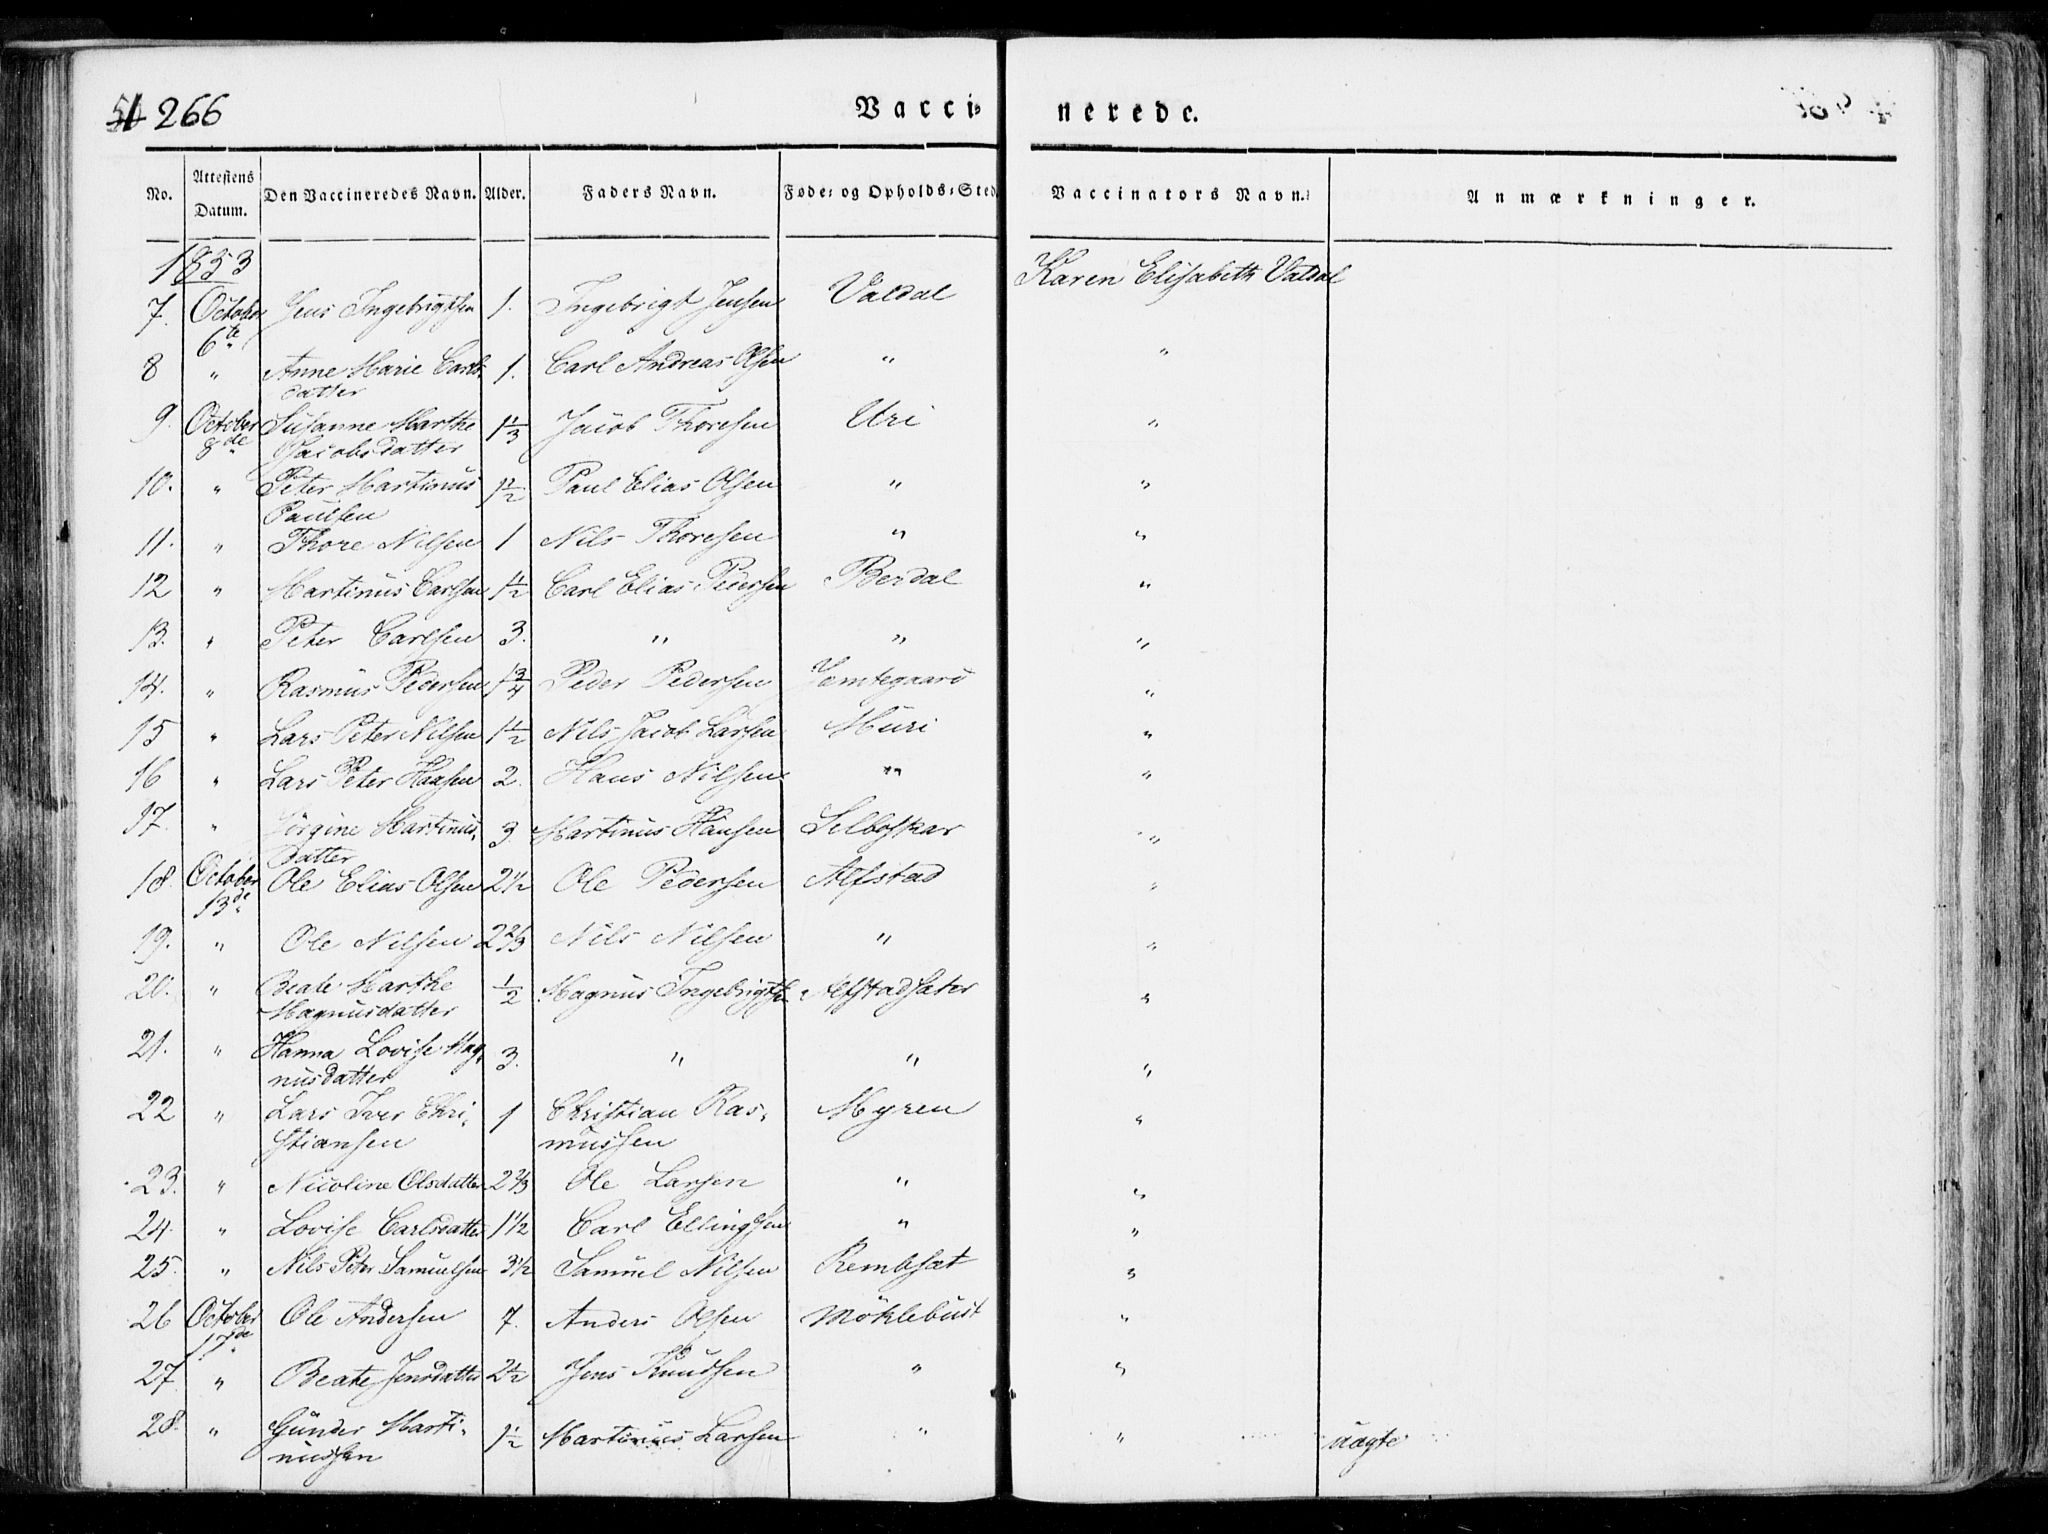 266
Vaccinerede.
No. Attestens Datum. Den Vaccineredes Navn. Alder. Faders Navn. Føde- og Opholds-Sted. Vaccinators Navn. Anmærkninger.
1853
7. October 6te Jens Ingebrigtsen 1. Ingebrigt Jensen Valdal Karen Elisabeth Valdal
8 " Anne Marie Carls- 1. Carl Andreas Olsen " "
datter
9. October 8de Susanne Marthe 1 1/3 Jacob Thoresen Uri "
Jacobsdatter
10. " Peter Martinus 1 1/2 Paul Elias Olsen " "
Paulsen
11. " Thore Nilsen 1 Nils Thoresen " "
12 " Martinus Carlsen 1 1/2 Carl Elias Pedersen Berdal "
13. " Peter Carlsen 3. " " "
14. " Rasmus Pedersen 1 3/4 Peder Pedersen Jemtegaard "
15 " Lars Peter Nilsen 1 1/2 Nils Jacob Larsen Muri "
16 " Lars Peter Hansen 2. Hans Nilsen " "
17. " Jørgine Martinus- 3. Martinus Hansen Selboskar "
datter
18. October 13de Ole Elias Olsen 2 1/2 Ole Pedersen Alfstad "
19. " Ole Nilsen 2 2/3 Nils Nilsen " "
20. " Beate Marthe 1/2 Magnus Ingebrigtsen Alfstadsæter "
Magnusdatter
21. " Hanna Lovise Mag- 3. " " "
nusdatter
22 " Lars Iver Chri- 1 Christian Ras- Myren "
stiansen mussen
23. " Nicoline Olsdatter 2 2/3 Ole Larsen " "
24. " Lovise Carlsdatter 1 1/2 Carl Ellingsen " "
25. " Nils Peter Samuelsen 3 1/2 Samuel Nilsen Rembsæt "
26 October 17de Ole Andersen 7. Anders Olsen Möklebust "
27 " Beate Jensdatter 2 1/2 Jens Knudsen " "
28. " Gunder Marti- 1 1/2 Martinus Larsen " " uægte
nussen